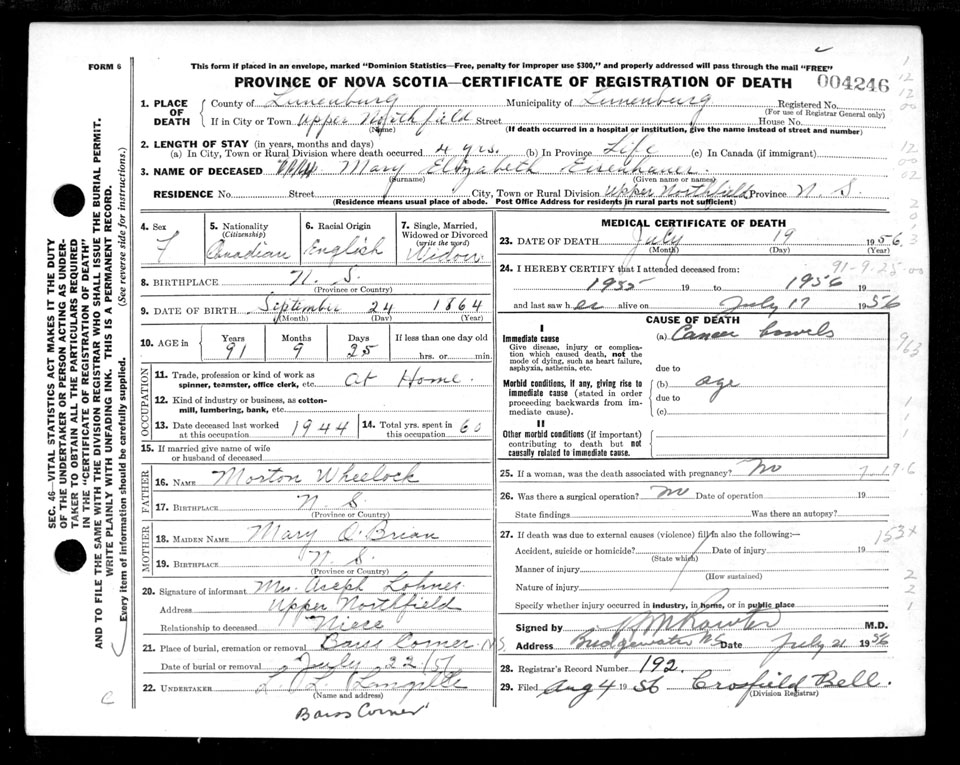 FORM 6
This form if placed in an envelope, marked "Dominion Statistics—Free, penalty for improper use $300," and properly addressed will pass through the mail "FREE"
PROVINCE OF NOVA SCOTIA—CERTIFICATE OF REGISTRATION OF DEATH 004246
1. PLACE OF DEATH County of Lunenburg Municipality of Lunenburg Registered No.
(For use of Registrar General only)
If in City or Town Upper Northfield Street House No.
(Name) (If death occurred in a hospital or institution, give the name instead of street and number)
2. LENGTH OF STAY (in years, months and days)
(a) In City, Town or Rural Division where death occurred 4 yrs. (b) In Province Life (c) In Canada (if immigrant)
3. NAME OF DECEASED Mary Elizabeth Eisenhauer
(Surname) (Given name or names)
RESIDENCE No. Street City, Town or Rural Division Upper Northfield Province N. S.
(Residence means usual place of abode. Post Office Address for residents in rural parts not sufficient)
4. Sex F
5. Nationality (Citizenship) Canadian
6. Racial Origin English
7. Single, Married, Widowed or Divorced (write the word) Widow
8. BIRTHPLACE N. S.
(Province or Country)
9. DATE OF BIRTH September 24 1864
(Month) (Day) (Year)
10. AGE in Years Months Days If less than one day old
91 9 25 hrs. or min.
OCCUPATION
11. Trade, profession or kind of work as spinner, teamster, office clerk, etc. At Home.
12. Kind of industry or business, as cotton-mill, lumbering, bank, etc.
13. Date deceased last worked at this occupation 1944
14. Total yrs. spent in this occupation 60
15. If married give name of wife or husband of deceased
FATHER
16. NAME Morton Wheelock
17. BIRTHPLACE N. S.
(Province or Country)
MOTHER
18. MAIDEN NAME Mary O'Brian
19. BIRTHPLACE N. S.
(Province or Country)
20. Signature of informant Mrs. Aseph Lohnes
Address Upper Northfield
Relationship to deceased Niece
21. Place of burial, cremation or removal Barss Corner N.S.
Date of burial or removal July 22/56
22. UNDERTAKER L. L. Langille
(Name and address)
Barss Corner
MEDICAL CERTIFICATE OF DEATH
23. DATE OF DEATH July 19 1956
(Month) (Day) (Year)
91-9-25
24. I HEREBY CERTIFY that I attended deceased from:
1955 19 to 1956 19
and last saw her alive on July 17 1956
CAUSE OF DEATH
I
Immediate cause
Give disease, injury or complication which caused death, not the mode of dying, such as heart failure, asphyxia, asthenia, etc.
(a) Cancer bowels
due to
Morbid conditions, if any, giving rise to immediate cause (stated in order proceeding backwards from immediate cause).
(b) age
due to
(c)
II
Other morbid conditions (if important) contributing to death but not causally related to immediate cause.
25. If a woman, was the death associated with pregnancy? No
26. Was there a surgical operation? No Date of operation 19
State findings Was there an autopsy?
27. If death was due to external causes (violence) fill in also the following:—
Accident, suicide or homicide? Date of injury 19
(State which)
Manner of injury
(How sustained)
Nature of injury
Specify whether injury occurred in industry, in home, or in public place
Signed by M.D.
Address Bridgewater NS Date July 21 1956
28. Registrar's Record Number 192.
29. Filed Aug 4 1956 Crofield Bell.
(Division Registrar)
SEC. 46—VITAL STATISTICS ACT MAKES IT THE DUTY
OF THE UNDERTAKER OR PERSON ACTING AS UNDER-
TAKER TO OBTAIN ALL THE PARTICULARS REQUIRED
IN THE "CERTIFICATE OF REGISTRATION OF DEATH"
AND TO FILE THE SAME WITH THE DIVISION REGISTRAR WHO SHALL ISSUE THE BURIAL PERMIT.
WRITE PLAINLY WITH UNFADING INK. THIS IS A PERMANENT RECORD.
Every item of information should be carefully supplied. (See reverse side for instructions.)